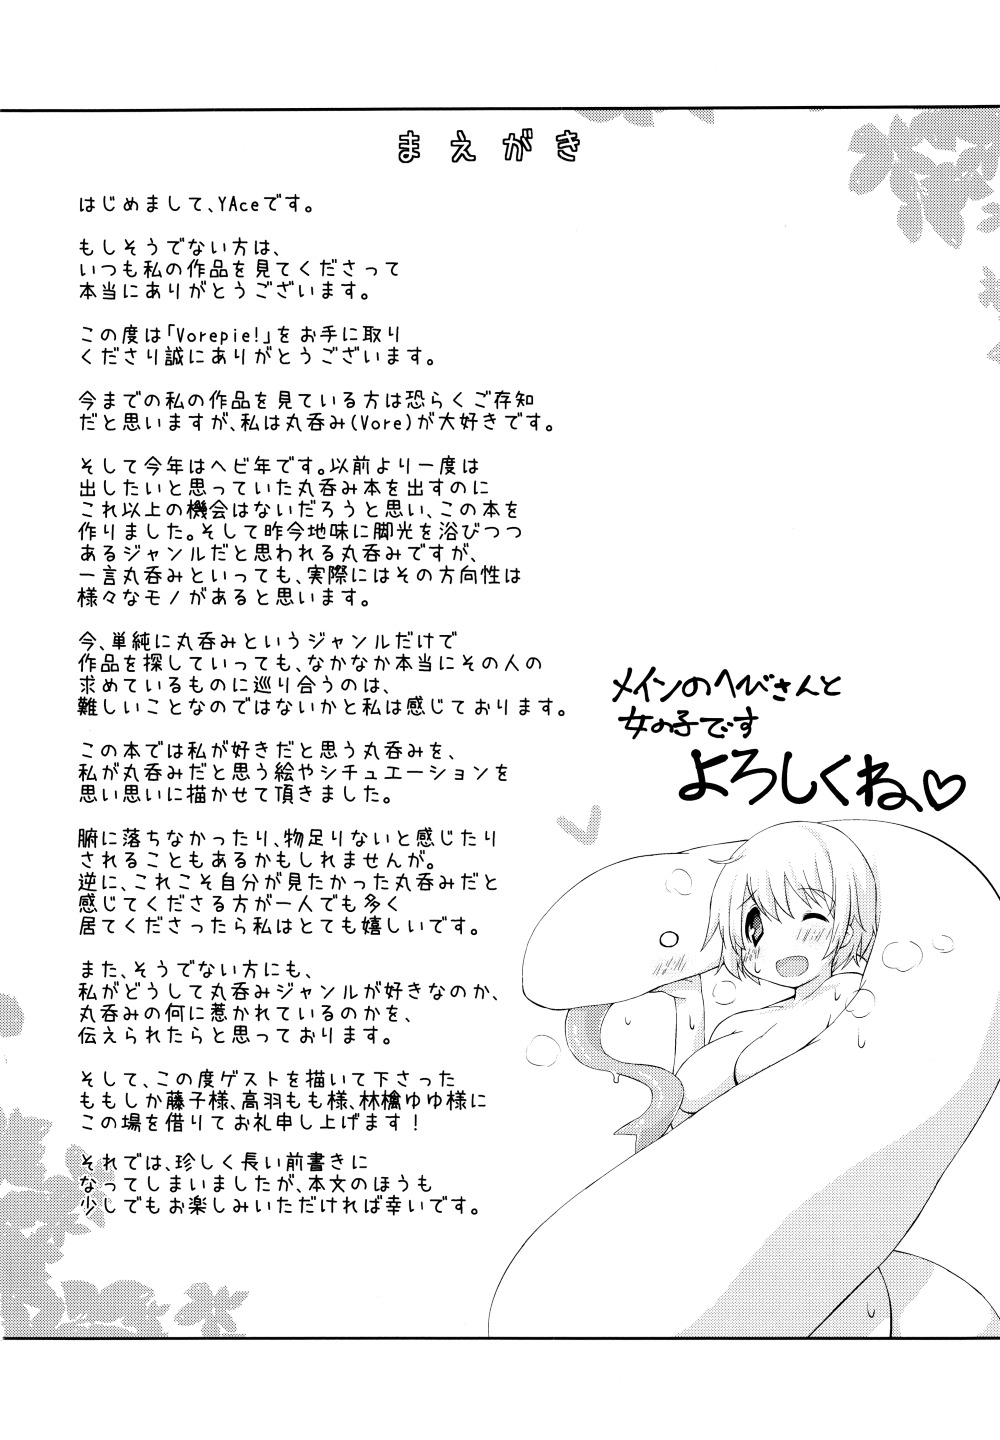 まえがき
はじめまして、YAceです。
もしそうでない方は、
いつも私の作品を見てくださって
本当にありがとうございます。
この度は「Vorepie!」をお手に取り
くださり誠にありがとうございます。
今までの私の作品を見ている方は恐らくご存知
だと思いますが、私は丸呑み(Vore)が大好きです。
そして今年はヘビ年です。以前より一度は
出したいと思っていた丸呑み本を出すのに
これ以上の機会はないだろうと思い、この本を
作りました。そして昨今地味に脚光を浴びつつ
あるジャンルだと思われる丸呑みですが、
一言丸呑みといっても、実際にはその方向性は
様々なモノがあると思います。
今、単純に丸呑みというジャンルだけで
作品を探していっても、なかなか本当にその人の
求めているものに巡り合うのは、
難しいことなのではないかと私は感じております。
この本では私が好きだと思う丸呑みを、
私が丸呑みだと思う絵やシチュエーションを
思い思いに描かせて頂きました。
腑に落ちなかったり、物足りないと感じたり
されることもあるかもしれませんが。
逆に、これこそ自分が見たかった丸呑みだと
感じてくださる方が一人でも多く
居てくださったら私はとても嬉しいです。
また、そうでない方にも、
私がどうして丸呑みジャンルが好きなのか、
丸呑みの何に惹かれているのかを、
伝えられたらと思っております。
そして、この度ゲストを描いて下さった
ももしか藤子様、高羽もも様、林檎ゆゆ様に
この場を借りてお礼申し上げます！
それでは、珍しく長い前書きに
なってしまいましたが、本文のほうも
少しでもお楽しみいただければ幸いです。
メインのへびさんと
女の子です
よろしくね♡